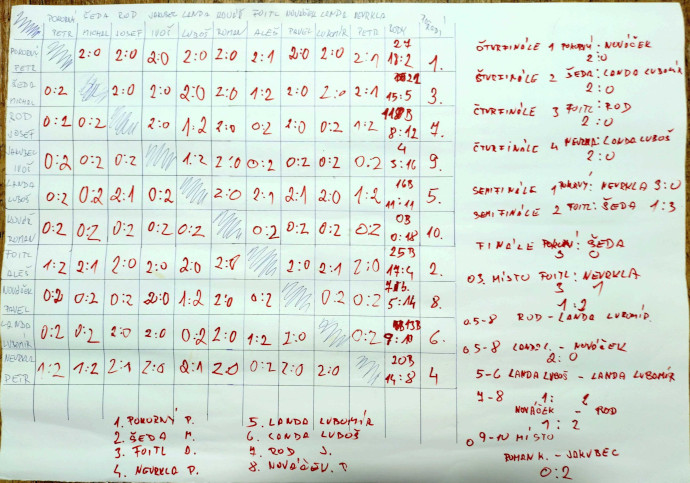 POKORNÝ ŠEDA ROD JAKUBEC LANDA KOUDĚ FOITL NOVÁČEK LANDA NEVRKLA BODY
PETR MICHAL JOSEF LUBOŠ ROMAN ALEŠ PAVEL LUBOMÍR PETR
POKORNÝ PETR 2:0 2:0 2:0 2:0 2:0 2:1 2:0 2:0 2:1 27 18:2 1.
ŠEDA MICHAL 0:2 2:0 2:0 2:0 2:0 1:2 2:0 2:0 2:1 15:5 3.
ROD JOSEF 0:2 0:2 2:0 1:2 2:0 0:2 2:0 0:2 1:2 8:12 7.
JAKUBEC 0:2 0:2 0:2 1:2 2:0 0:2 0:2 0:2 0:2 4 3:16 9.
LANDA LUBOŠ 0:2 0:2 2:1 0:2 2:0 2:1 2:1 2:0 1:2 16B 11:11 5.
ROMAN 0:2 0:2 0:2 0:2 0:2 0:2 0:2 0:2 0:2 0B 0:18 10.
FOITL ALEŠ 1:2 2:1 2:0 2:0 2:0 2:0 2:0 2:1 2:0 25B 17:4 2.
NOVÁČEK PAVEL 0:2 0:2 0:2 2:0 1:2 2:0 0:2 0:2 0:2 5:14 8.
LANDA LUBOMÍR 0:2 0:2 2:0 2:0 0:2 2:0 1:2 2:0 0:2 13B 9:10 6.
NEVRKLA PETR 1:2 1:2 2:1 2:0 2:1 2:0 0:2 2:0 2:0 20B 14:8 4
1. POKORNÝ P.
2. ŠEDA M.
3. FOITL A.
4. NEVRKLA P.
5. LANDA LUBOMÍR
6. LANDA LUBOŠ
7. ROD J.
8. NOVÁČEK P.
ČTVRFINÁLE 1 POKORNÝ : NOVÁČEK
2:0
ČTVRFINÁLE 2 ŠEDA : LANDA LUBOMÍR
2:0
ČTVRFINÁLE 3 FOITL : ROD
2:0
ČTVRFINÁLE 4 NEVRKLA : LANDA LUBOŠ
2:0
SEMIFINÁLE 1 POKORNÝ : NEVRKLA 3:0
SEMIFINÁLE 2 FOITL : ŠEDA 1:3
FINÁLE POKORNÝ : ŠEDA
3 0
O 3. MÍSTO FOITL : NEVRKLA
3 1
1:2
O.5-8 ROD - LANDA LUBOMÍR.
O.5-8 LANDA L. - NOVÁČEK
2:0
5-6 LANDA LUBOŠ - LANDA LUBOMÍR
1: 2
7-8 NOVÁČEK - ROD
1:2
O 9-10 MÍSTO
ROMAN K. - JAKUBEC
0:2